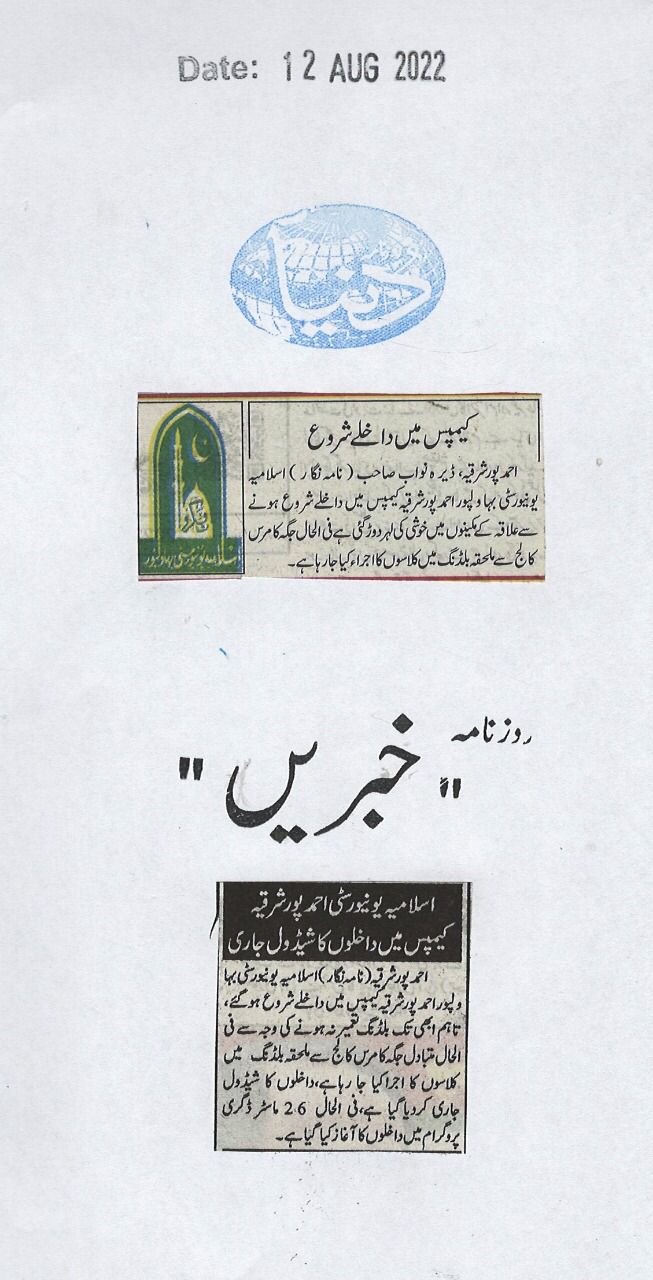 Date: 12 AUG 2022
دنیا
کیمپس میں داخلے شروع
احمد پور شرقیہ، ڈیرہ نواب صاحب (نامہ نگار) اسلامیہ
یونیورسٹی بہاولپور احمد پور شرقیہ کیمپس میں داخلے شروع ہونے
سے علاقہ کے مکینوں میں خوشی کی لہر دوڑ گئی ہے فی الحال جگہ کامرس
کالج سے ملحقہ بلڈنگ میں کلاسوں کا اجراء کیا جا رہا ہے۔
روزنامہ
"خبریں"
اسلامیہ یونیورسٹی احمد پور شرقیہ
کیمپس میں داخلوں کا شیڈول جاری
احمد پور شرقیہ (نامہ نگار) اسلامیہ یونیورسٹی بہا
ولپور احمد پور شرقیہ کیمپس میں داخلے شروع ہو گئے،
تاہم ابھی تک بلڈنگ تعمیر نہ ہونے کی وجہ سے فی
الحال متبادل جگہ کامرس کالج سے ملحقہ بلڈنگ میں
کلاسوں کا اجرا کیا جا رہا ہے، داخلوں کا شیڈول
جاری کر دیا گیا ہے، فی الحال 26 ماسٹر ڈگری
پروگرام میں داخلوں کا آغاز کیا گیا ہے۔